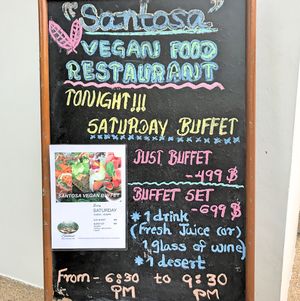 "Santosa"
VEGAN FOOD
RESTAURANT
TONIGHT!!!
SATURDAY BUFFET
JUST BUFFET
-499 ฿
BUFFET SET
-699 ฿
* 1 drink
(Fresh Juice (or)
1 glass of wine)
* 1 desert
From - 6:30 to 9:30
PM PM
SANTOSA VEGAN BUFFET
Every
SATURDAY